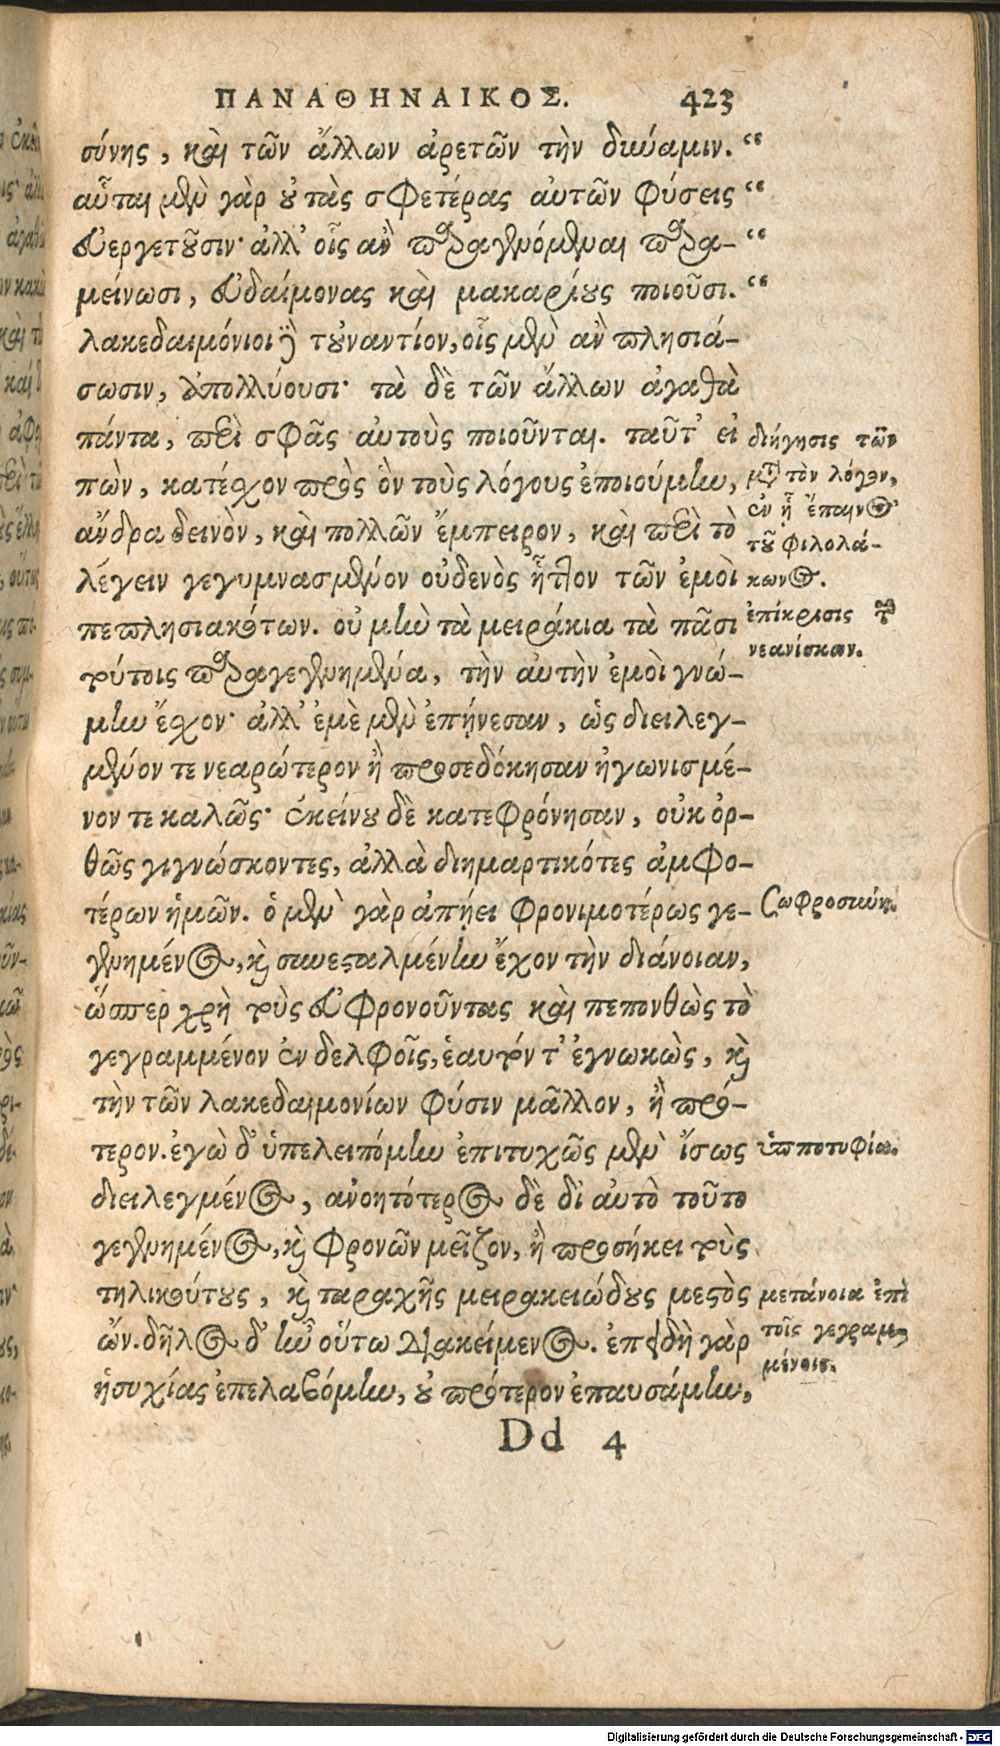 ΠΑΝΑΘΗΝΑΙΚΟΣ. 423
σύνης, καὶ τῶν ἄλλων ἀρετῶν τὴν δύναμιν. “
αὗται μὲν γὰρ οὐ τὰς σφετέρας αὐτῶν φύσεις “
εὐεργετοῦσιν· ἀλλ' οἷς ἂν παραγενόμεναι παρα- “
μείνωσι, εὐδαίμονας καὶ μακαρίους ποιοῦσι. “
λακεδαιμόνιοι δὲ τοὐναντίον, οἷς μὲν ἂν πλησιά-
σωσιν, ἀπολλύουσι· τὰ δὲ τῶν ἄλλων ἀγαθὰ
πάντα, περὶ σφᾶς αὐτοὺς ποιοῦνται. ταῦτ' εἰ
πὼν, κατέσχον πρὸς ὃν τοὺς λόγους ἐποιούμην,
ἄνδρα δεινὸν, καὶ πολλῶν ἔμπειρον, καὶ περὶ τὸ
λέγειν γεγυμνασμένον οὐδενὸς ἧττον τῶν ἐμοὶ
πεπλησιακότων. οὐ μὴν τὰ μειράκια τὰ πᾶσι
τούτοις παραγεγενημένα, τὴν αὐτὴν ἐμοὶ γνώ-
μην ἔσχον· ἀλλ' ἐμὲ μὲν ἐπῄνεσαν, ὡς διειλεγ-
μένον τε νεαρώτερον ἢ προσεδόκησαν ἠγωνισμέ-
νον τε καλῶς· ἐκείνου δὲ κατεφρόνησαν, οὐκ ὀρ-
θῶς γιγνώσκοντες, ἀλλὰ διημαρτικότες ἀμφο-
τέρων ἡμῶν. ὁ μὲν γὰρ ἀπῄει φρονιμοτέρως γε-
γενημένος, καὶ συνεσταλμένην ἔχον τὴν διάνοιαν,
ὥσπερ χρὴ τοὺς εὐφρονοῦντας καὶ πεπονθὼς τὸ
γεγραμμένον ἐν δελφοῖς, ἑαυτόν τ' ἐγνωκὼς, καὶ
τὴν τῶν λακεδαιμονίων φύσιν μᾶλλον, ἢ πρό-
τερον. ἐγὼ δ' ὑπελειπόμην ἐπιτυχῶς μὲν ἴσως
διειλεγμένος, ἀνοητότερος δὲ δι' αὐτὸ τοῦτο
γεγενημένος, καὶ φρονῶν μεῖζον, ἢ προσήκει τοὺς
τηλικούτους, καὶ ταραχῆς μειρακιώδους μεστὸς
ὤν. δῆλος δ' ἦν οὕτω διακείμενος. ἐπειδὴ γὰρ
ἡσυχίας ἐπελαβόμην, οὐ πρότερον ἐπαυσάμην,
Dd 4
διήγησις τῶν
μετὰ τὸν λόγον,
ἐν ᾗ ἔπαινος
τοῦ φιλολά-
κωνος.
ἐπίκρισις τῶν
νεανίσκων.
Σωφροσύνη.
μετάνοια ἐπὶ
τοῖς γεγραμ-
μένοις.
Digitalisierung gefördert durch die Deutsche Forschungsgemeinschaft - DFG